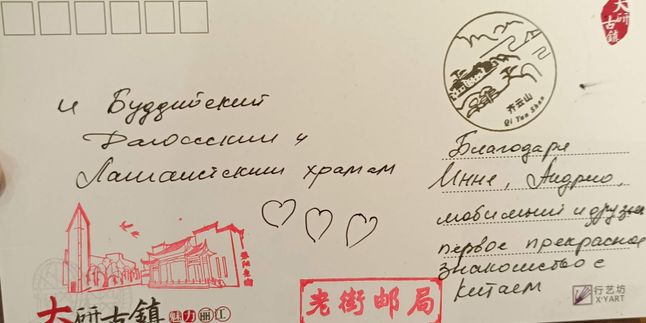 大研古鎮
齐云山
Qi Yun Shan
и Буддийский
Даосский и
Ламаистским храмам
Благодаря
Инне, Андрею,
мобильний и друзья
первое прекрасное
знакомство с
Китаем
老街邮局
行艺坊
X·YART
大研古鎮
魅力丽江